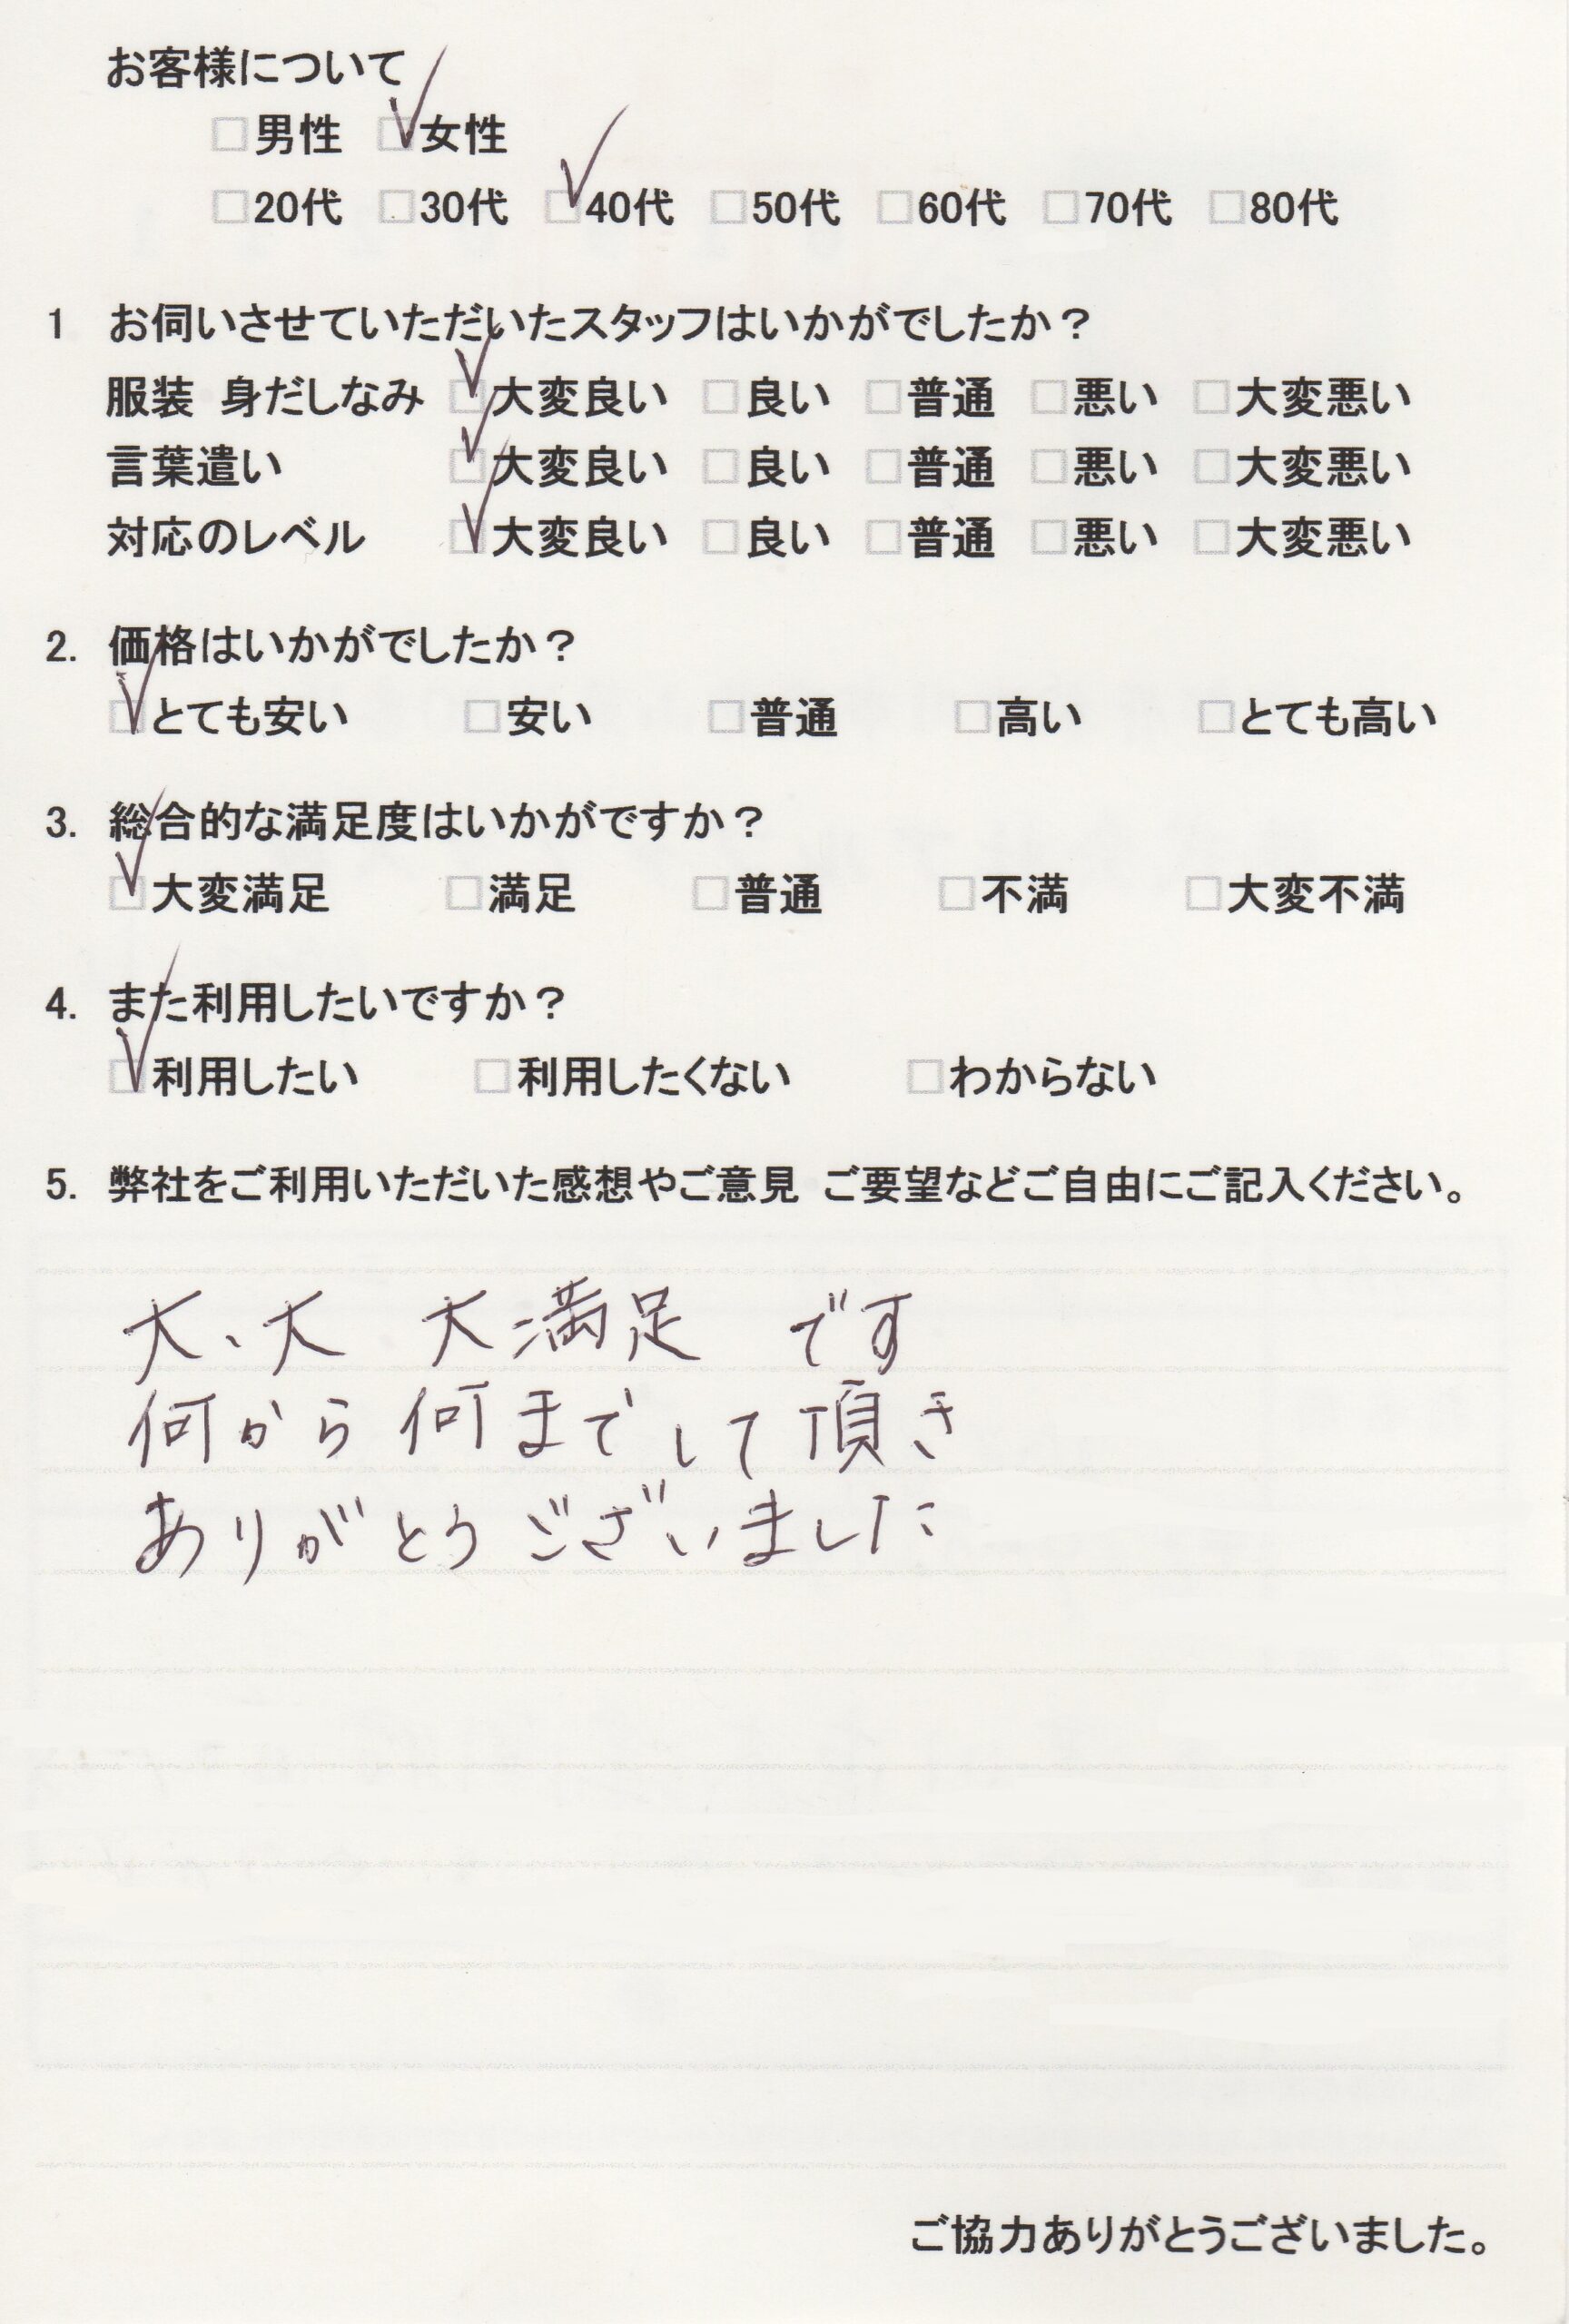 お客様について
□男性 ☑女性
□20代 □30代 ☑40代 □50代 □60代 □70代 □80代
1 お伺いさせていただいたスタッフはいかがでしたか？
服装 身だしなみ ☑大変良い □良い □普通 □悪い □大変悪い
言葉遣い ☑大変良い □良い □普通 □悪い □大変悪い
対応のレベル ☑大変良い □良い □普通 □悪い □大変悪い
2. 価格はいかがでしたか？
☑とても安い □安い □普通 □高い □とても高い
3. 総合的な満足度はいかがですか？
☑大変満足 □満足 □普通 □不満 □大変不満
4. また利用したいですか？
☑利用したい □利用したくない □わからない
5. 弊社をご利用いただいた感想やご意見 ご要望などご自由にご記入ください。
大、大 大満足 です
何から何までして頂き
ありがとうございました
ご協力ありがとうございました。